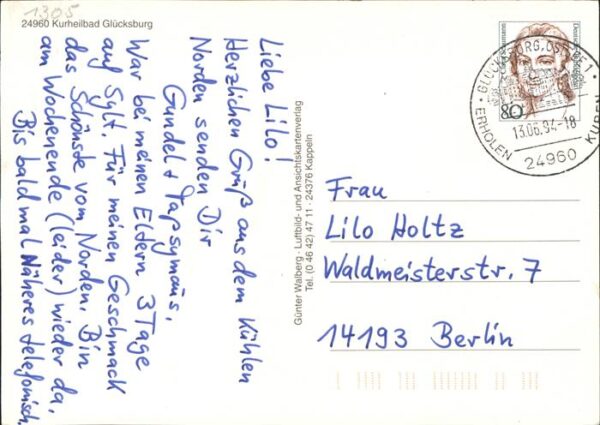 1305
24960 Kurheilbad Glücksburg
Liebe Lilo!
Herzlichen Gruß aus dem Kühlen
Norden senden Dir
Gundel + Tapsymaus.
War bei meinen Eltern 3 Tage
auf Sylt. Für meinen Geschmack
das Schönste vom Norden. Bin
am Wochenende (leider) wieder da.
Bis bald mal Näheres telefonisch.
Günter Walberg - Luftbild- und Ansichtskartenverlag
Tel. (0 46 42) 47 11 · 24376 Kappeln
80
GLÜCKSBURG, OSTSEE 1
13.06.94-18
ERHOLEN
24960
KUREN
Frau
Lilo Holtz
Waldmeisterstr. 7
14193 Berlin